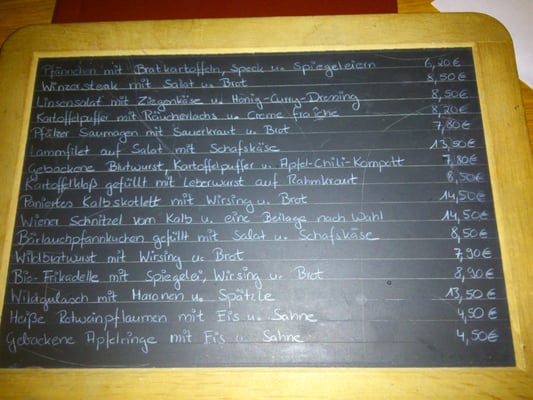 Pfännchen mit Bratkartoffeln, Speck u. Spiegeleiern 6,20€
Winzersteak mit Salat u. Brot 8,50€
Linsensalat mit Ziegenkäse u. Honig-Curry-Dressing 8,50€
Kartoffelpuffer mit Räucherlachs u. Creme fraîche 8,20€
Pfälzer Saumagen mit Sauerkraut u. Brot 7,80€
Lammfilet auf Salat mit Schafskäse 13,50€
Gebackene Blutwurst, Kartoffelpuffer u. Apfel-Chili-Kompott 7,80€
Kartoffelkloß gefüllt mit Leberwurst auf Rahmkraut 8,50€
Paniertes Kalbskotlett mit Wirsing u. Brot 14,50€
Wiener Schnitzel vom Kalb u. eine Beilage nach Wahl 14,50€
Bärlauchpfannkuchen gefüllt mit Salat u. Schafskäse 8,50€
Wildbratwurst mit Wirsing u. Brot 7,90€
Bio-Frikadelle mit Spiegelei, Wirsing u. Brot 8,90€
Wildgulasch mit Maronen u. Spätzle 13,50€
Heiße Rotweinpflaumen mit Eis u. Sahne 4,50€
Gebackene Apfelringe mit Eis u. Sahne 4,50€